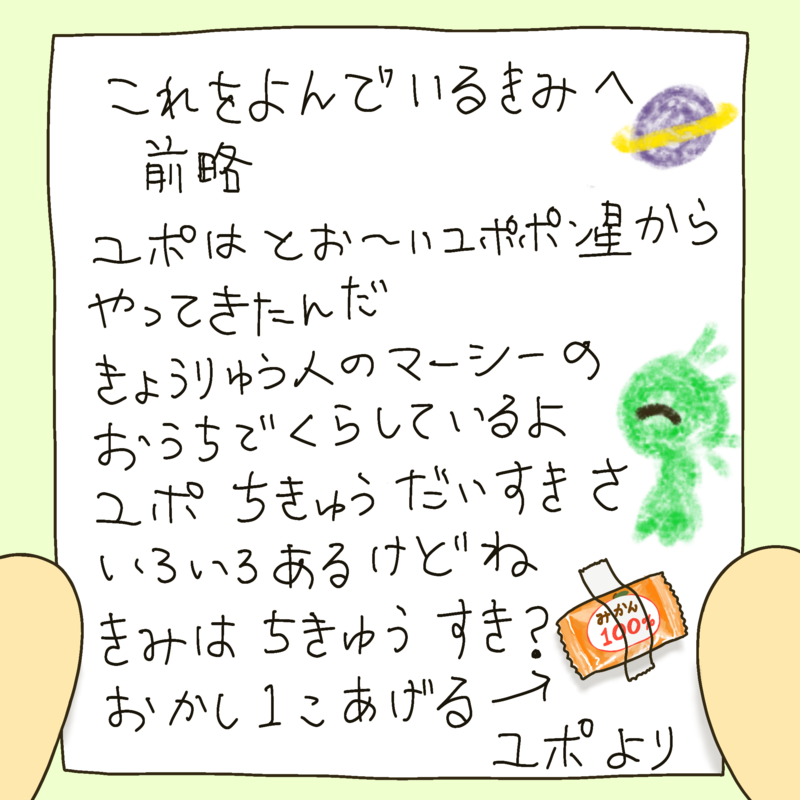 これをよんでいるきみへ
前略
ユポは とお〜いユポポン星から
やってきたんだ
きょうりゅう人のマーシーの
おうちでくらしているよ
ユポ ちきゅう だいすきさ
いろいろあるけどね
きみは ちきゅう すき?
おかし1こあげる→
みかん
100%
ユポより